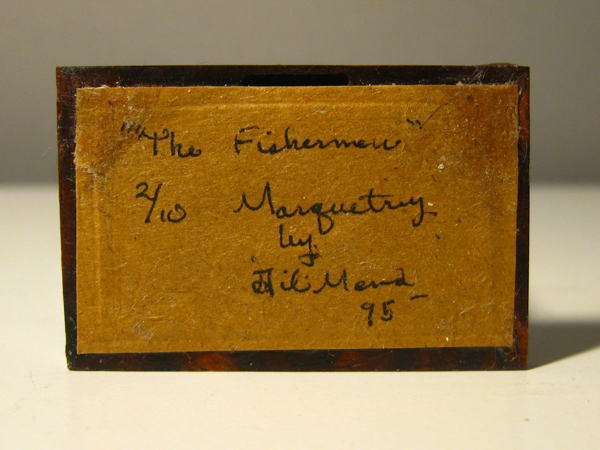 "The Fishermen"
2/10 Marquetry
by
95